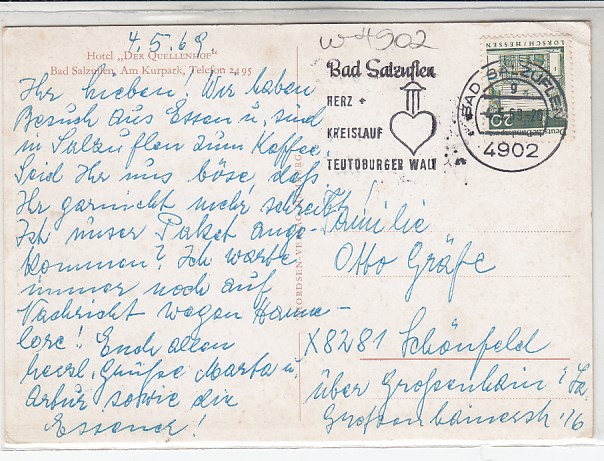 4.5.69
Hotel „DER QUELLENHOF"
Bad Salzuflen, Am Kurpark, Telefon 2495
Ihr Lieben! Wir haben
Besuch aus Essen u. sind
in Salzuflen zum Kaffee.
Seid Ihr uns böse, daß
Ihr garnicht mehr schreibt!
Ist unser Paket ange-
kommen? Ich warte
immer noch auf
Nachricht wegen Hanne-
lore! Euch allen
herzl. Grüße Marta u.
Artur sowie die
Essener!
W 4902
Bad Salzuflen
HERZ +
KREISLAUF
TEUTOBURGER WALD
BAD SALZUFLEN
4902
LORSCH/HESSEN
20
Deutsche Bundespost
Familie
Otto Gräfe
X8281 Schönfeld
über Großenhain i/Sa
Großenhainerstr. 16